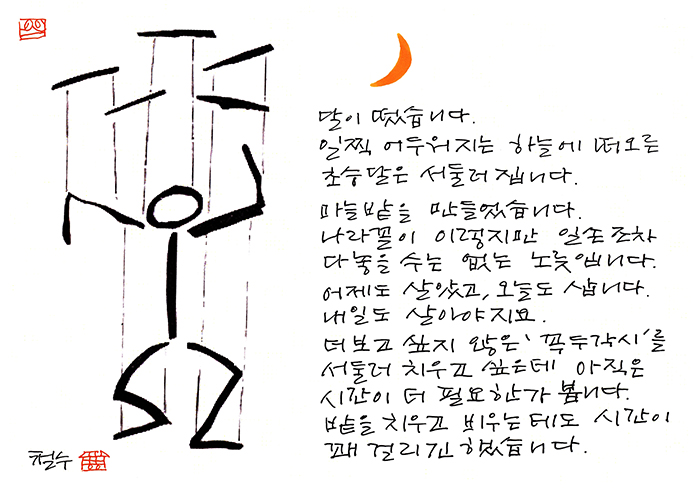 달이 떴습니다.
일찍 어두워지는 하늘에 떠오른
초승달은 서둘러 집니다.
마늘밭을 만들었습니다.
나라꼴이 이렇지만 일손조차
다 놓을 수는 없는 노릇입니다.
어제도 살았고, 오늘도 삽니다.
내일도 살아야지요.
더 보고 싶지 않은 '꼭두각시'를
서둘러 치우고 싶은데 아직은
시간이 더 필요한가 봅니다.
밭을 치우고 비우는데도 시간이
꽤 걸리긴 했습니다.
철수